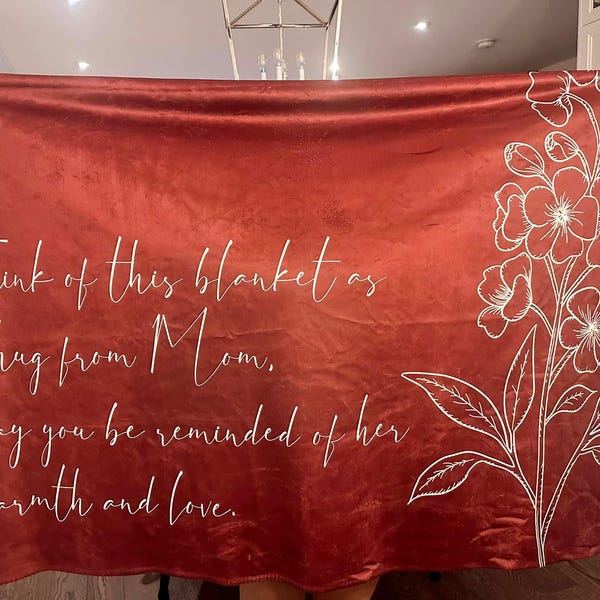 ink of this blanket as
hug from Mom,
ay you be reminded of her
armth and love.